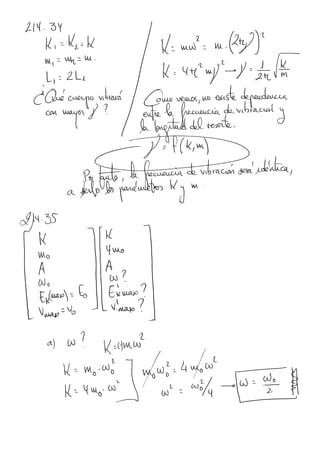 214.34
K₁ = K₂ = K
m₁ = m₂ = m.
L₁ = 2L₂
¿Qué cuerpo vibrará
con mayor ν?
K = mω² = m·(2πν)²
K = 4π²mν² → ν = 1/2π √K/m
Como vemos, no existe dependencia
entre la frecuencia de vibración y
la longitud del resorte.
ν = f(K, m)
Por tanto, la frecuencia de vibración será idéntica,
a los parámetros K y m.
214.35
K
m₀
A
ω₀
Eₖ(max) = E₀
Vmax = V₀
K
4m₀
A
ω?
E'ₖ max?
V'max?
a) ω? K = 4mω²
K = m₀·ω₀²
K = 4m₀·ω²
m₀ω₀² = 4m₀ω²
ω² = ω₀²/4 → ω = ω₀/2